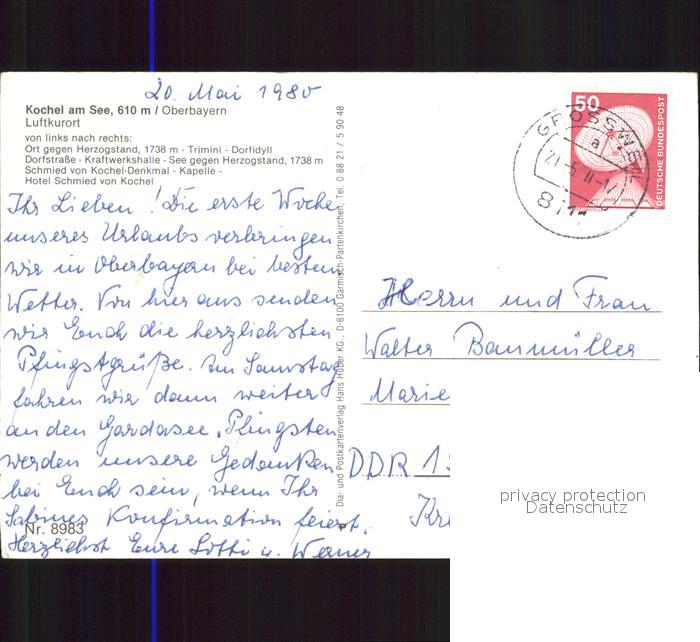 20. Mai 1980
Kochel am See, 610 m / Oberbayern
Luftkurort
von links nach rechts:
Ort gegen Herzogstand, 1738 m - Trimini - Dorfidyll
Dorfstraße - Kraftwerkshalle - See gegen Herzogstand, 1738 m
Schmied von Kochel-Denkmal - Kapelle -
Hotel Schmied von Kochel
Ihr Lieben! Die erste Woche
unseres Urlaubs verbringen
wir in Oberbayern bei bestem
Wetter. Von hier aus senden
wir Euch die herzlichsten
Pfingstgrüße. Am Samstag
fahren wir dann weiter
an den Gardasee. Pfingsten
werden unsere Gedanken
bei Euch sein, wenn Ihr
Sabines Konfirmation feiert.
Nr. 8983
Herzlichst Eure Lotti u. Werner
Dia- und Postkartenverlag Hans Huber KG · D-8100 Garmisch-Partenkirchen, Tel. 0 88 21 / 5 90 48
GROSSWEIL
a
50
DEUTSCHE BUNDESPOST
Herrn und Frau
Walter Baumüller
Marie
DDR 1
Kr
privacy protection
Datenschutz